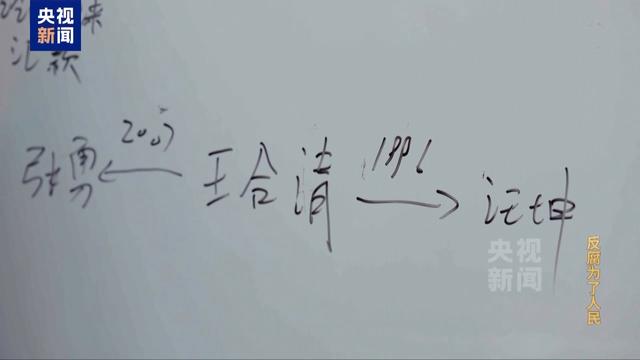 央视
新闻
汇款
2007
1996
张勇 ← 王合清 → 汪坤
央视
新闻
反腐为了人民